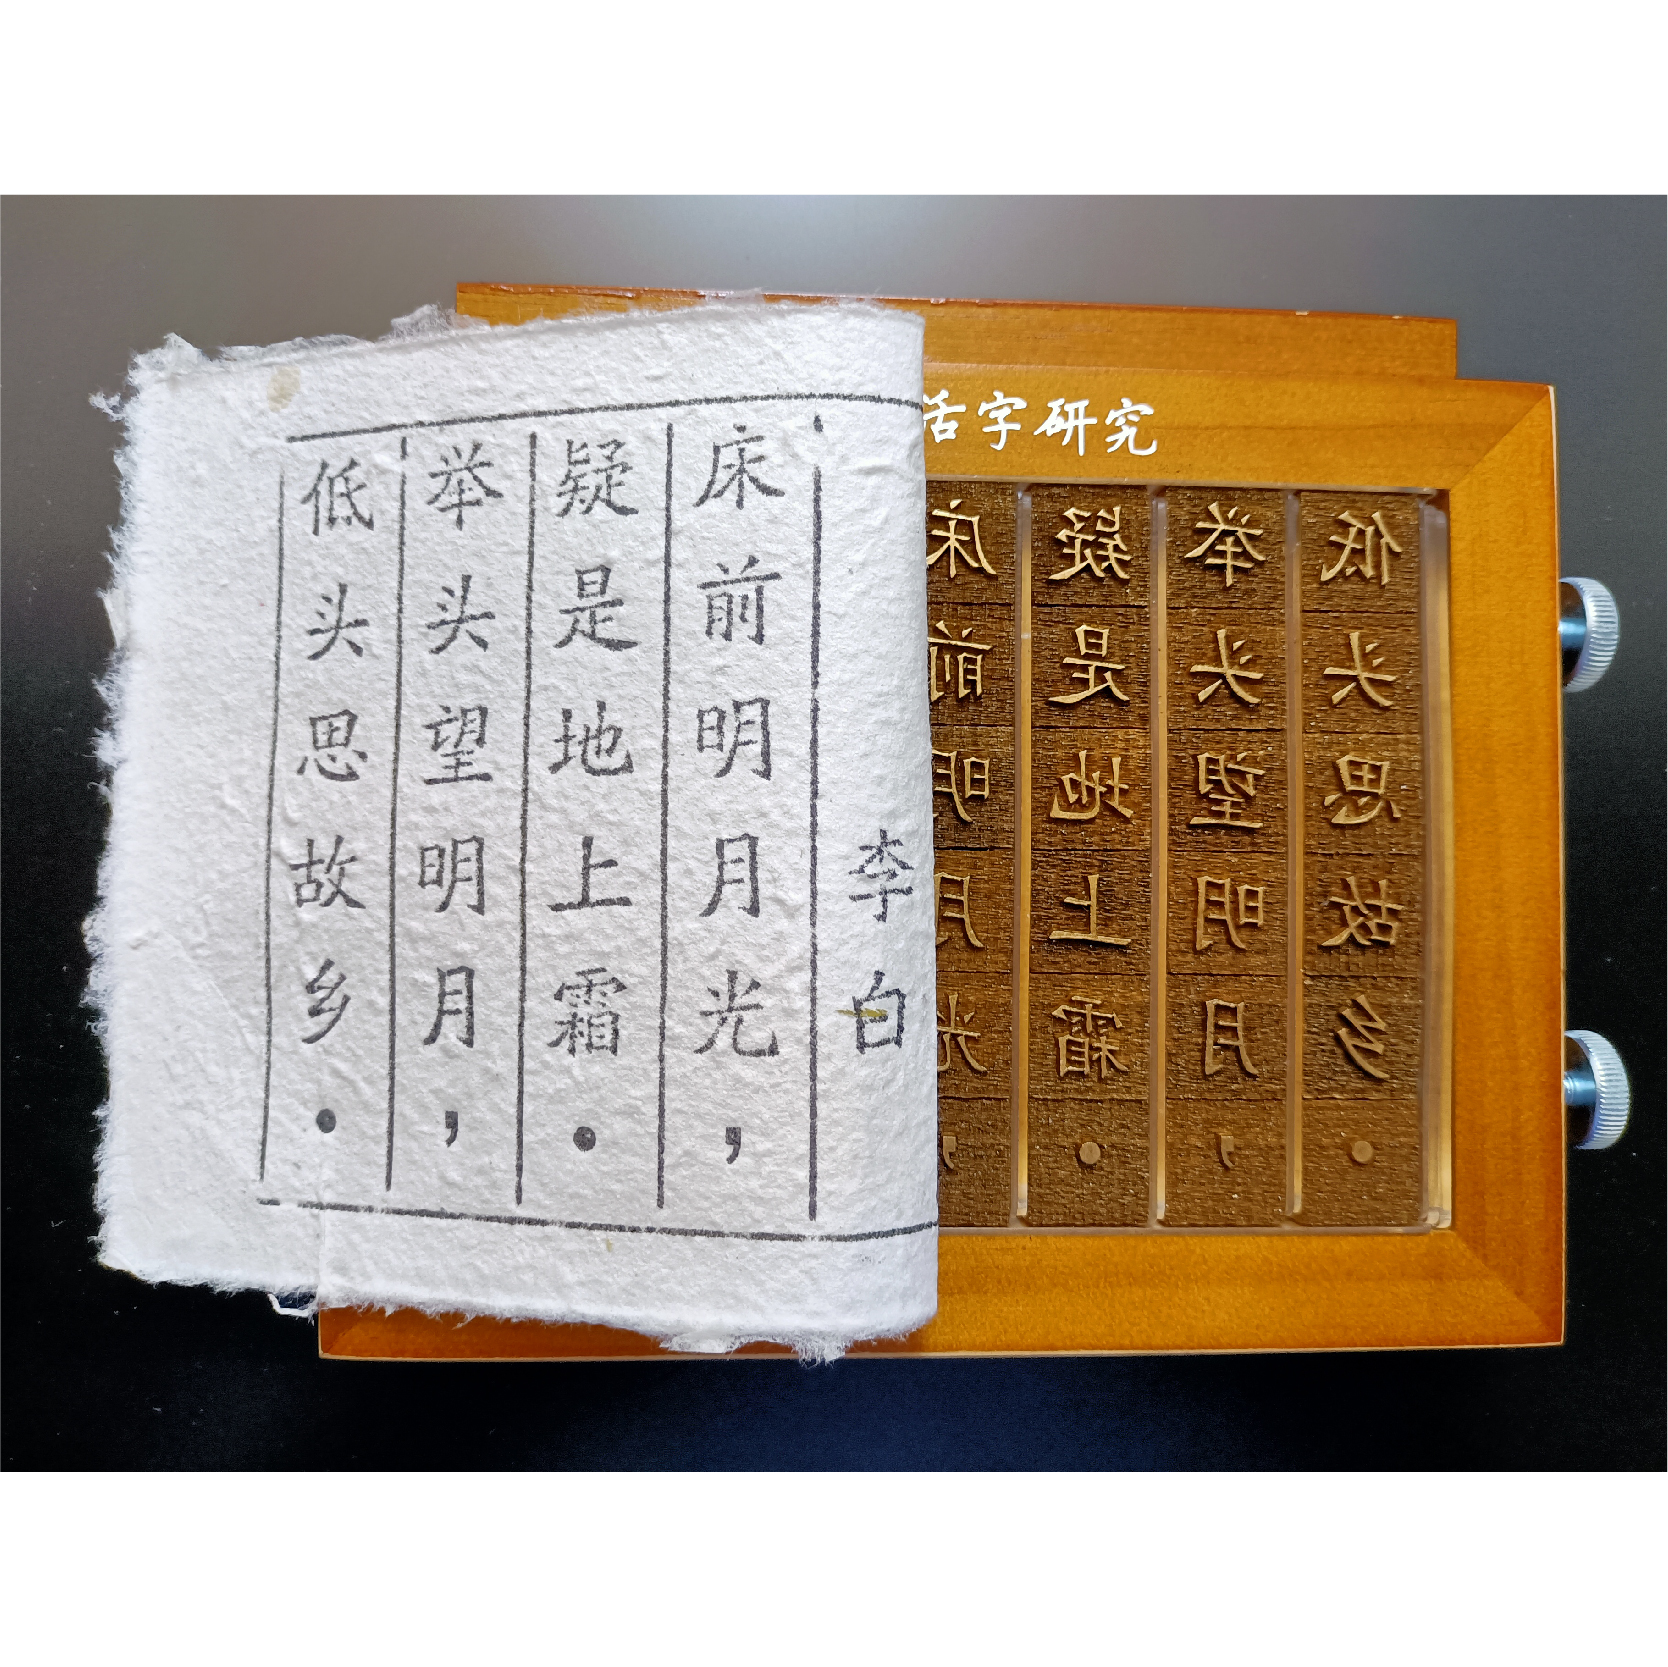 活字研究
李白
床前明月光，
疑是地上霜．
举头望明月，
低头思故乡．
床前明月光，
疑是地上霜．
举头望明月，
低头思故乡．